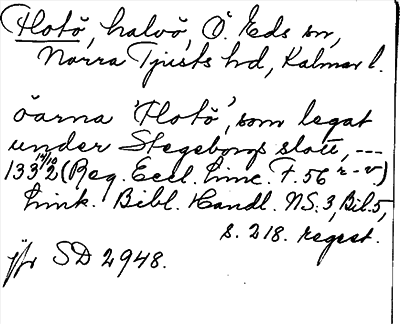 Flotö, halvö, Ö. Eds sn,
Norra Tjusts hd, Kalmar l.
öarna 'Flotö', som legat
under Stegeborgs slott, ---
133 14/10 2 (Reg. Eccl. Linc. F. 56 r-v.)
Link. Bibl. Handl. NS. 3, Bil. 5,
s. 218. regest.
jfr SD 2948.